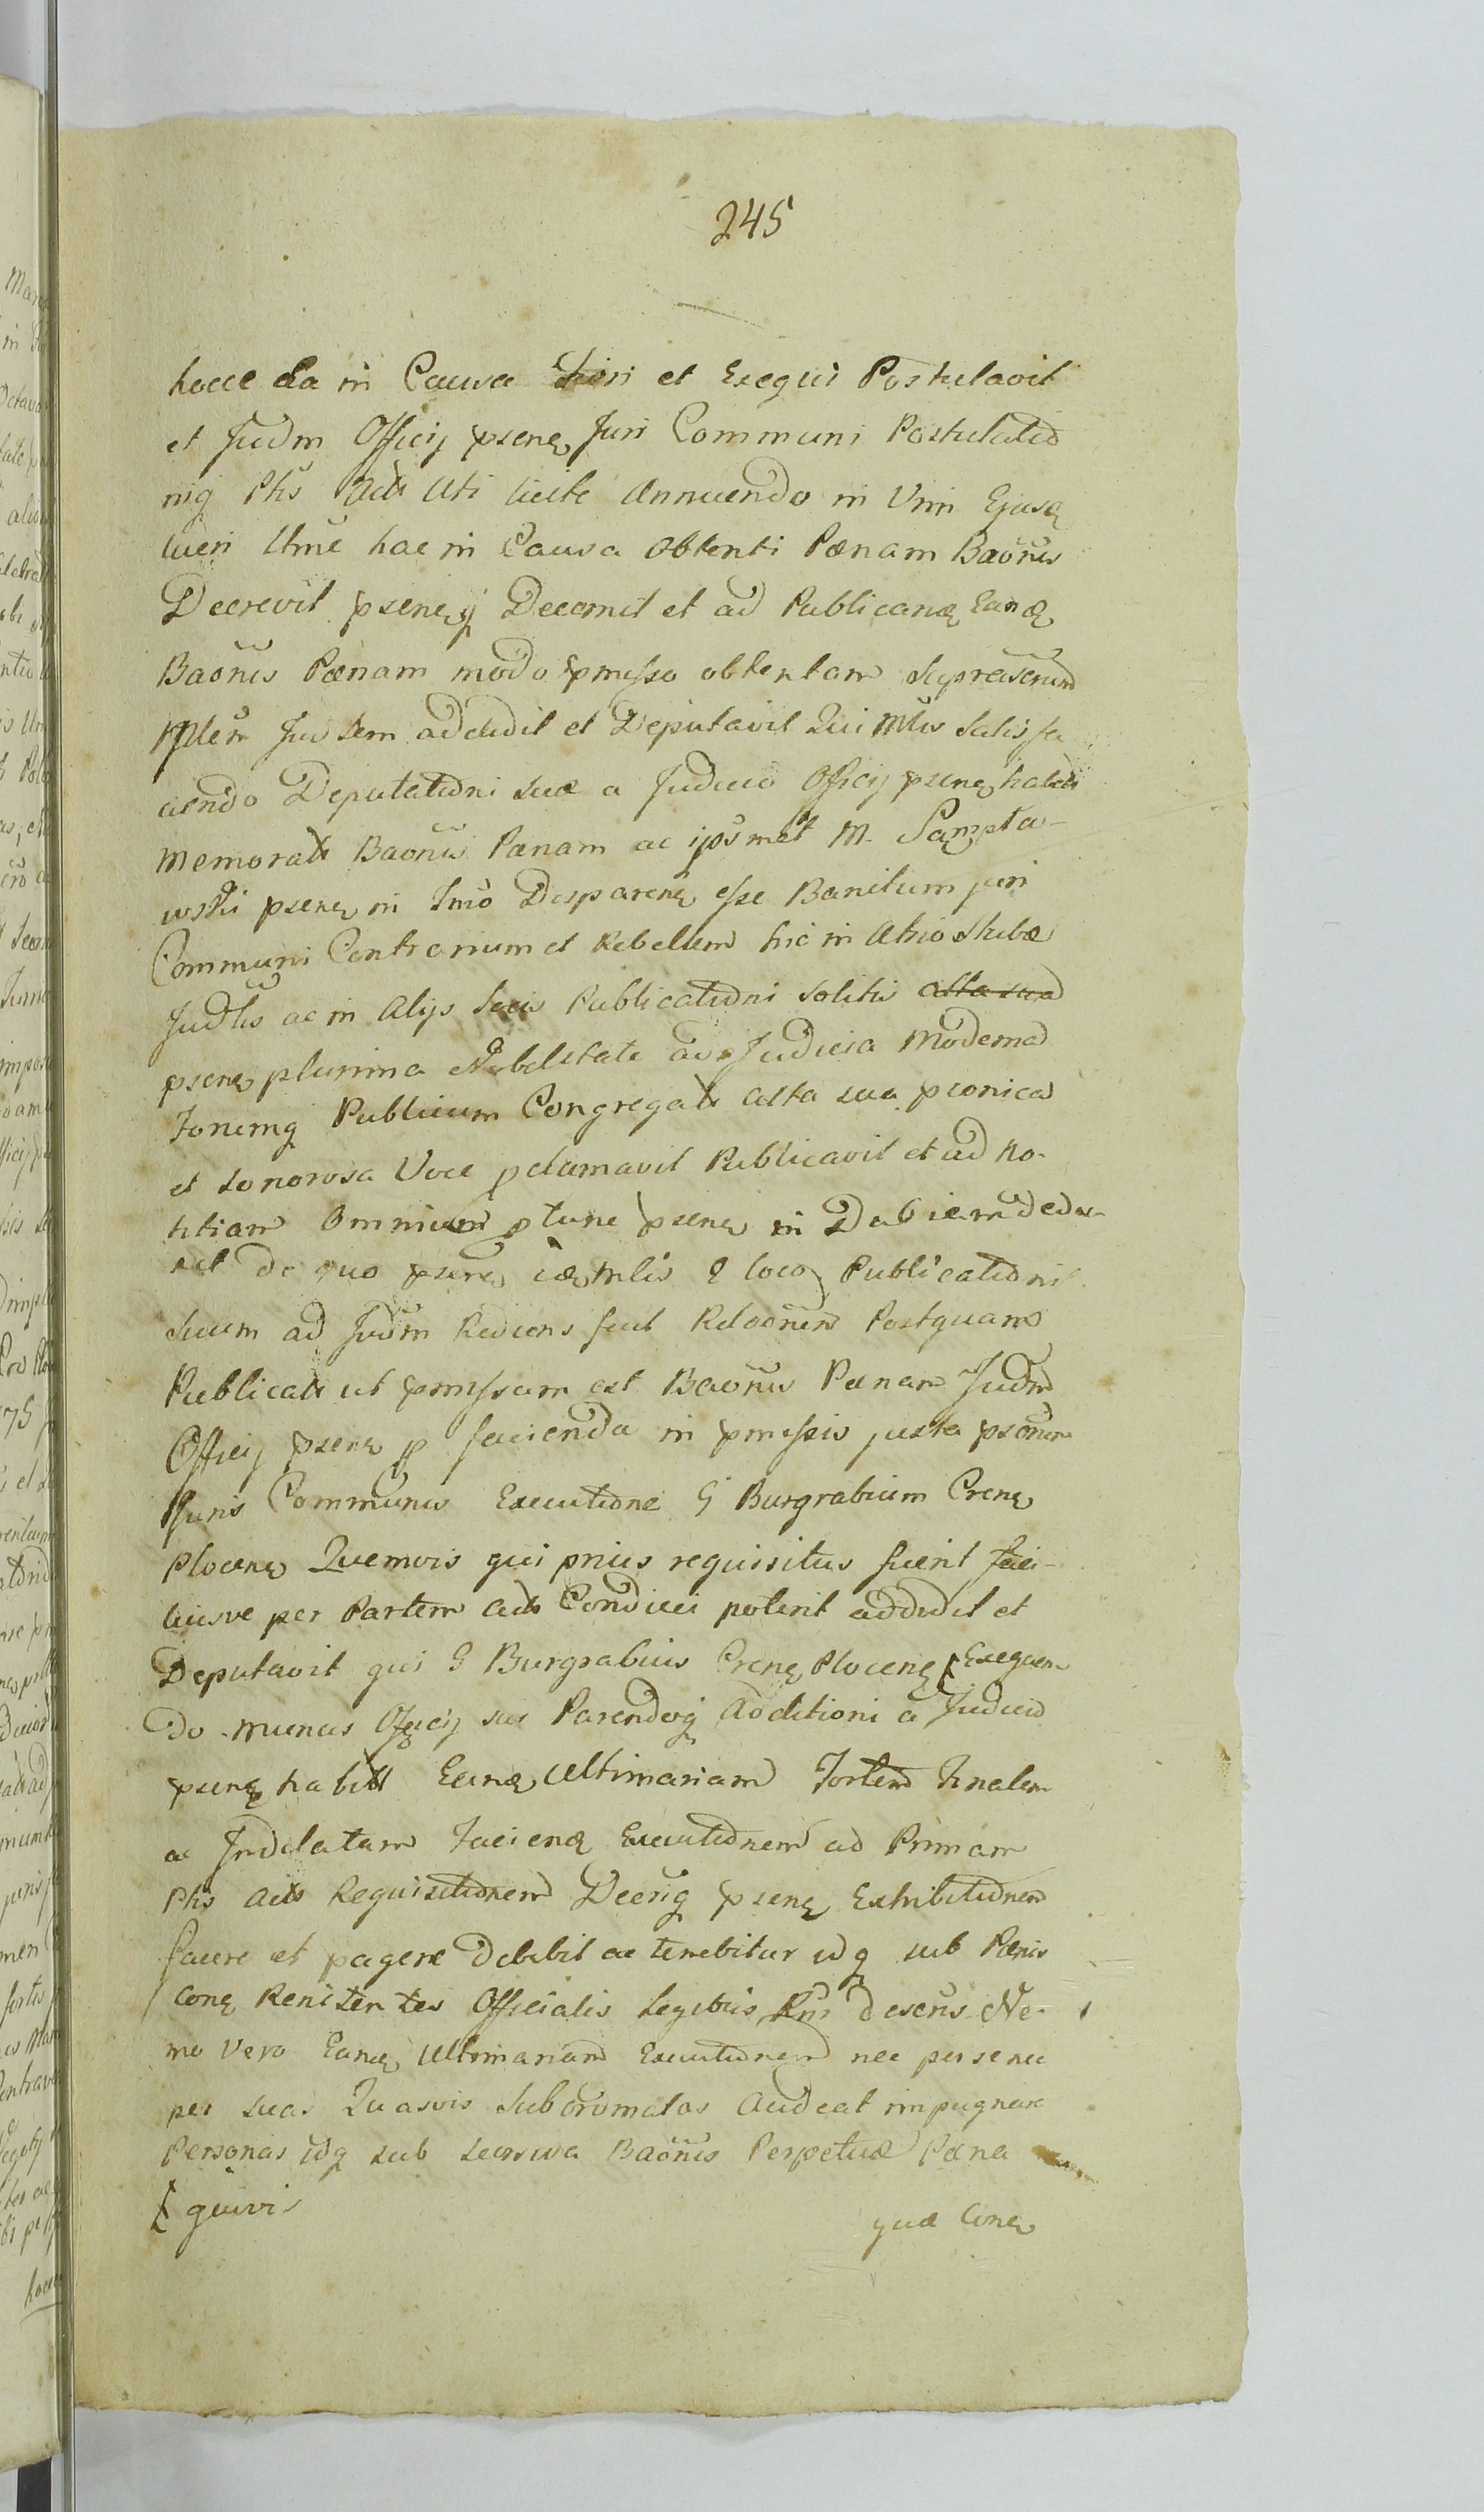 245
hocce ea in Causa fieri et Exequi Postulavit
et Judm Officij psenę Juri Communi Postulatio
niq Ptis Acts uti licite Annuendo in Vim Ejusę
lucri Ulmę hac in Causa obtenti Pœnam Baonis
Decrevit psenęq Decernit et ad Publicanę Eanę
Baonis Pœnam modo pmisso obtentam
Mlem addidit et Deputavit Qui Mlis Satisfa
ciendo Deputationi suæ a Judicio Officij psenę habits
memorats Baonis Pœnam ac ipsmet M. Sampła-
wski psenę in Tmo Desparenę esse Banitum juri
Communi Contrarium et Rebellem hic in Atrio Stubæ
Judlis ac in Alijs locis Publicationi solitis alta sua
psenę plurima Nobilitate ad Judicia Moderna
Forumq Publicum Congregats alta sua pconica
et sonorosa Voce pclamavit Publicavit et ad No-
titiam Omnium ptunc psenę in Dubiam dedu-
xit de quo psenę idę Mlis e loco Publicationis
suum ad Judm Rediens fecit Relaonem Postquam
Publicats ut pmissum est Baonis Pœnam Judm
Officij psenę p facienda in pmissis juxta psonem
Juris Communis Executione G Burgrabium Crenę
Plocenę Quemvis qui prius requisitus fuerit faci-
liusve per Partem Acts Condici poterit addidit et
Deputavit qui G Burgrabius Crenę Plocenę [Exequen
do munus Officij sui Parendoq Additioni a Judicio
psenę habits Eanę Ultimariam Fortem Finalem
ac Indelatam Facienę Executionem ad Primam
Ptis Acts Requisitionem Decriq psenę Exhibitionem
facere et pagere debebit ac tenebitur idq sub Pœnis
Conę Renitentes Officialis Legibus Rni descris Ne-
mo Vero Eanę Ultimariam Executionem nec per se nec
per suas Quasvis Subordinatas Audeat impugnare
Personas idq sub Baonis Perpetuæ Pœna
[ quivis
quæ Conę